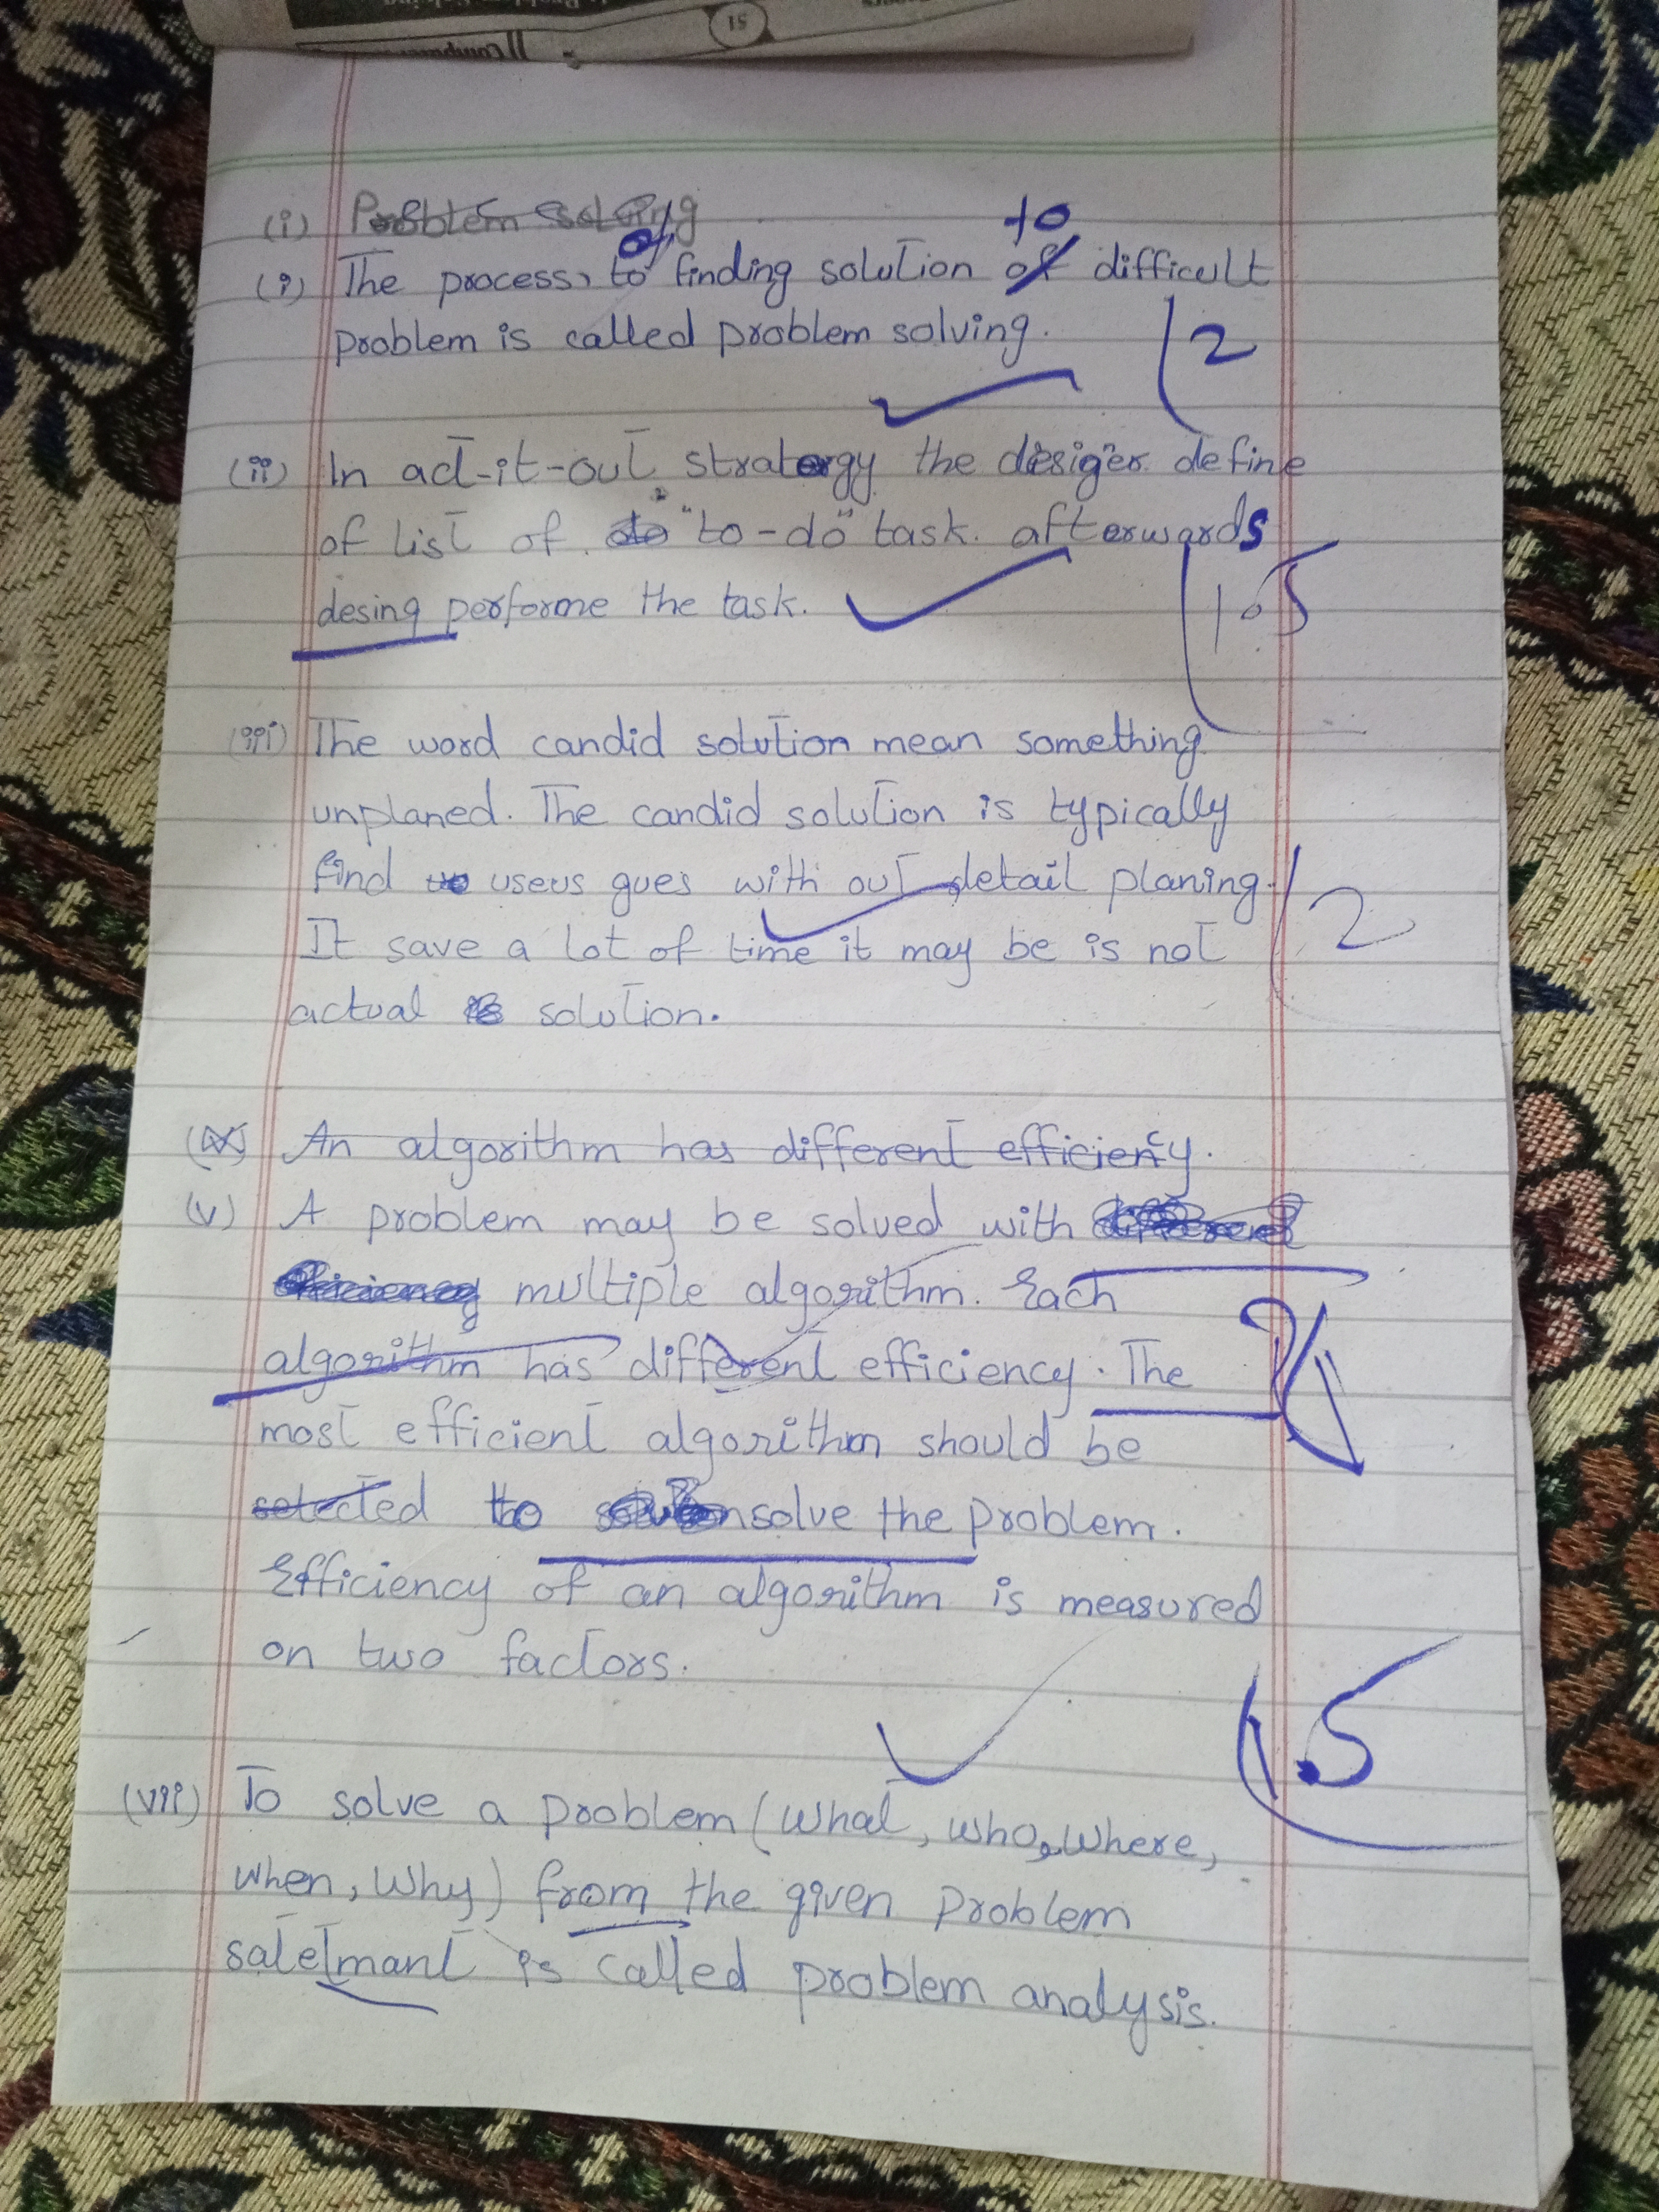 51
(i) Problem solving
of to
(i) The process, to finding solution of difficult
problem is called problem solving.
2
(ii) In act-it-out stratergy the desiger define
of list of do "to-do" task. afterwards
desing performe the task.
1.5
(iii) The word candid solution mean something
unplaned. The candid solution is typically
find users gues with out detail planing.
It save a lot of time it may be is not
actual is solution.
2
An algorithm has different efficiency.
(v) A problem may be solved with
multiple algorithm. Each
algorithm has different efficiency. The
2
most efficient algorithm should be
selected to solve the problem.
Efficiency of an algorithm is measured
on two factors.
1.5
(vii) To solve a problem (What, who, Where,
when, Why) from the given problem
satetmant is called problem analysis.